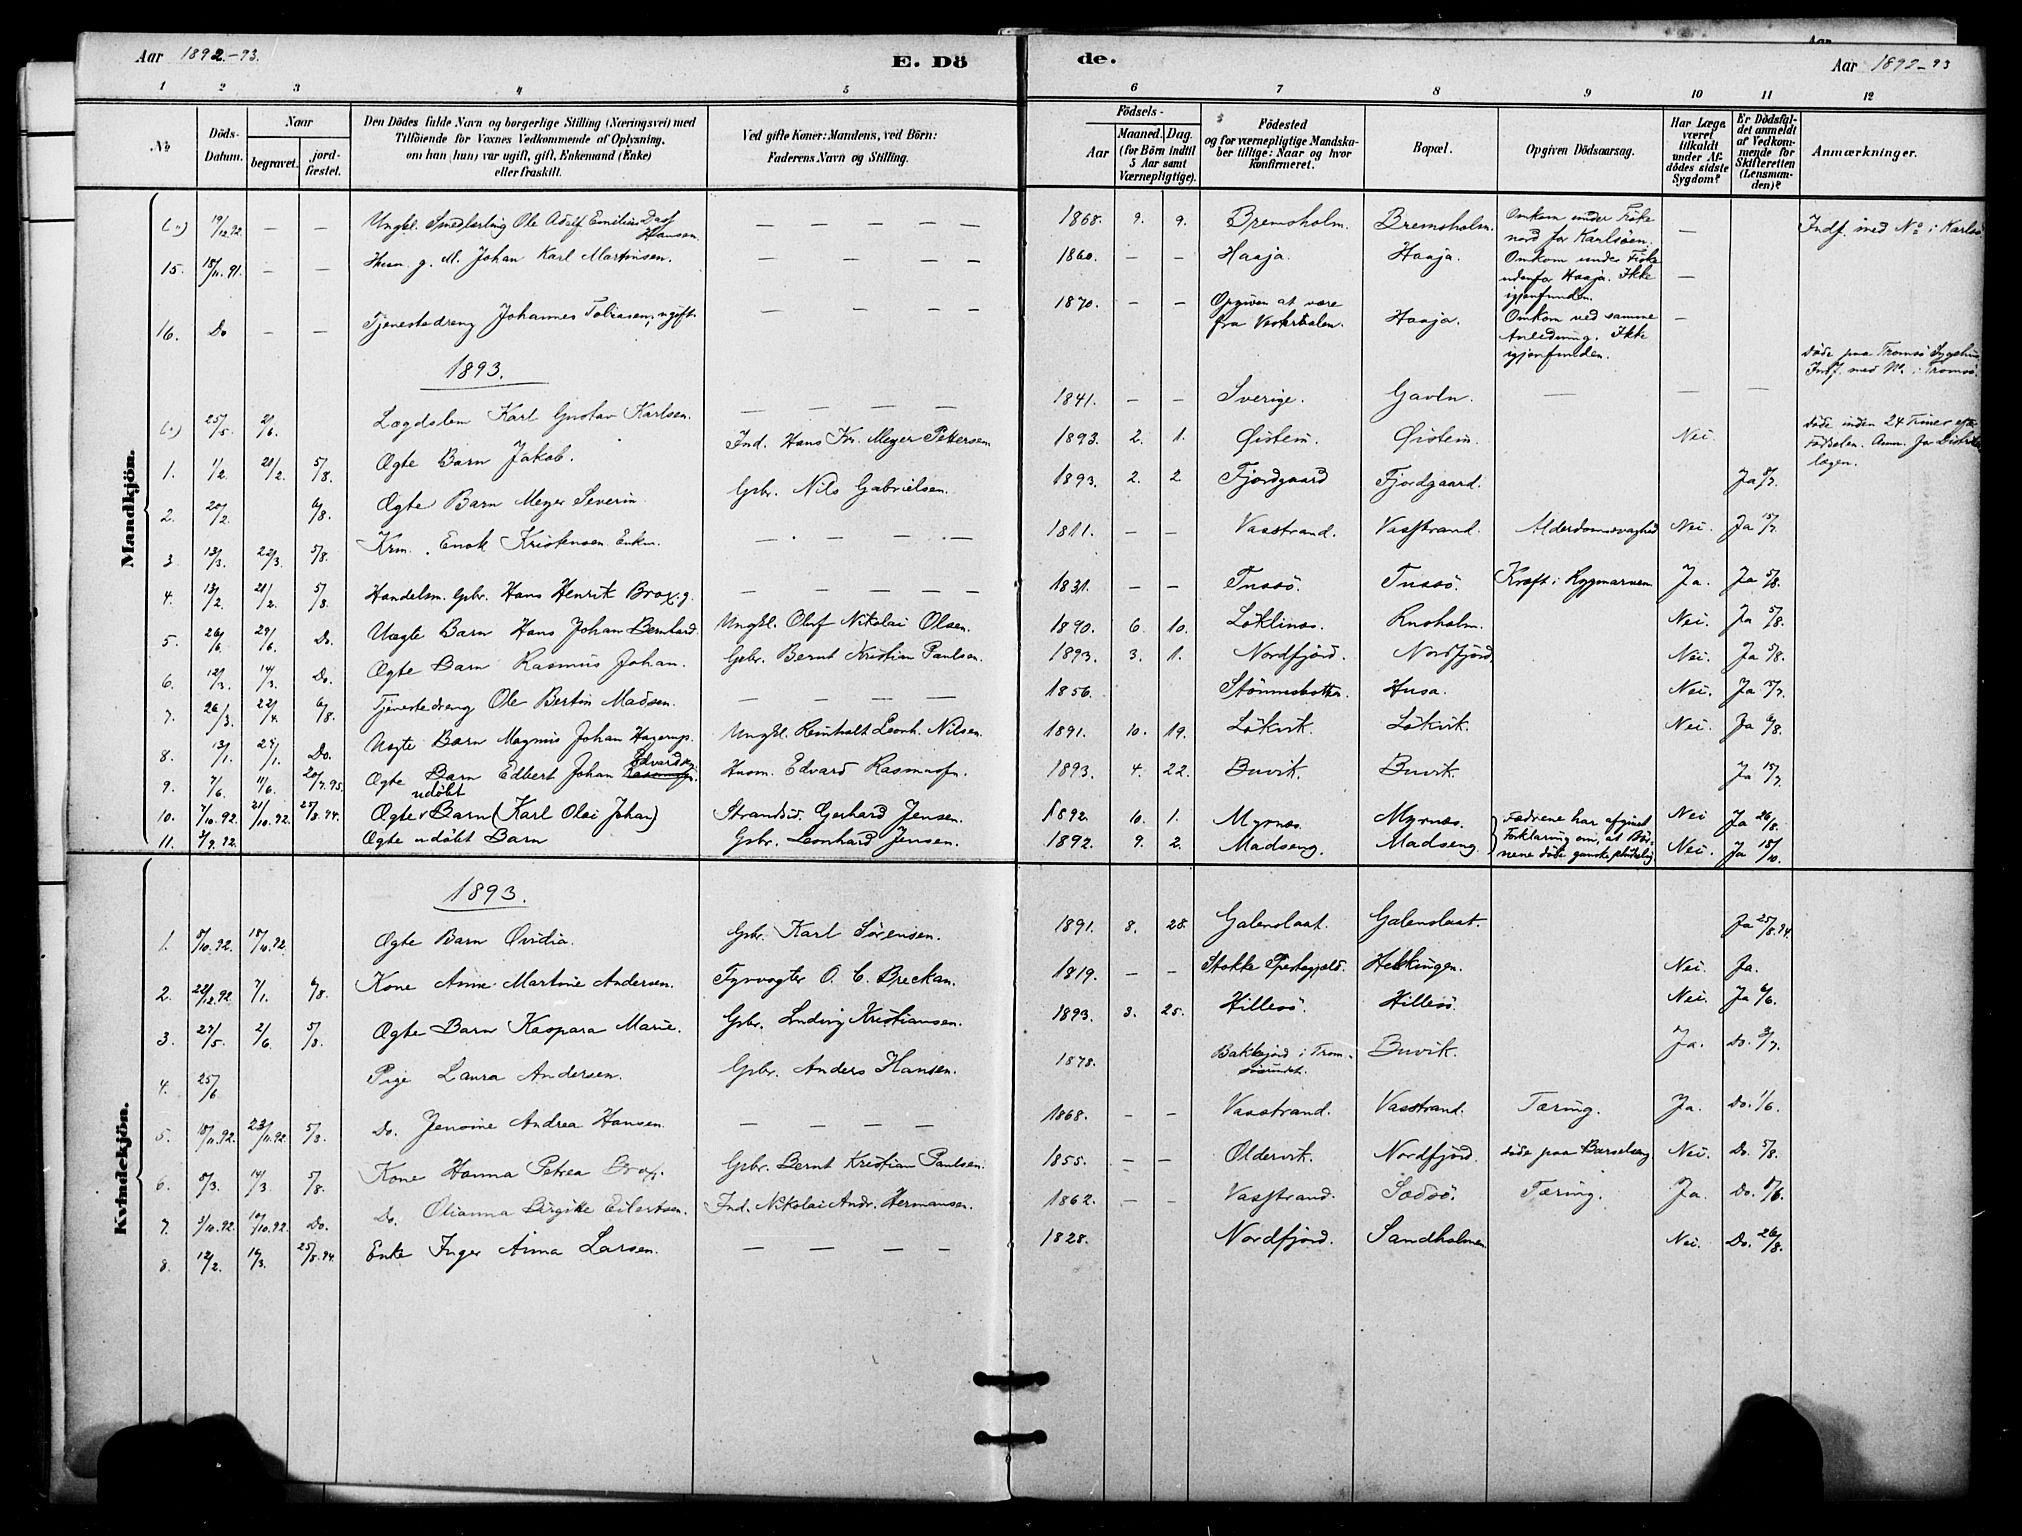 Aar 1892-93.
E. Dö
de.
Aar 1892-93
Aar
1 2 3 4 5 6 7 8 9 10 11 12
No
Döds-
Datum.
Naar
begravet.
jord-
fæstet.
Den Dödes fulde Navn og borgerlige Stilling (Næringsvei) med
Tilföiende for Voxnes Vedkommende af Oplysning,
om han (hun) var ugift, gift, Enkemand (Enke)
eller fraskilt.
Ved gifte Koner: Mandens, ved Börn:
Faderens Navn og Stilling.
Födsels-
Aar
Maaned.
Dag.
(for Börn indtil
5 Aar samt
Værnepligtige).
Födested
og for værnepligtige Mandska-
ber tillige: Naar og hvor
konfirmeret.
Bopæl.
Opgiven Dödsaarsag.
Har Læge
været
tilkaldt
under Af-
dödes sidste
Sygdom?
Er Dödsfal-
det anmeldt
af Vedkom-
mende for
Skifteretten
(Lensman-
den)?
Anmærkninger.
Mandkjön.
(") 19/12.92. — — Ungkl. Smedlærling Ole Adolf Emilius Dass Hansen. — — — — 1868. 9. 9. Bremsholm. Bremsholm. Omkom under Fiske nord for Karlsöen. — Indf. med No i Karlsö.
15. 18/11.91. — — Husm. g. M. Johan Karl Martinsen. — — — — 1860. — — Haaja. Haaja. Omkom under Fiske udenfor Haaja. Ikke igjenfunden. —
16. Do — — Tjenestedreng Johannes Tobiasen, ugift. — — — — 1870. — — Opgiven at være fra Vesteraalen. Haaja. Omkom ved samme Anledning. Ikke igjenfunden. —
1893.
(") 25/5. 2/6. Lægdslem Karl Gustav Karlsen. — — — — 1841. — — Sverige. Gavln. — — — döde paa Tromsö Sygehus. Indf. med No. i Tromsö.
1. 1/2. 21/2. 5/8. Ægte Barn Jakob. Ind. Hans Kr. Meyer Pettersen 1893. 2. 1. Öistein. Öistein. Nei. döde inden 24 Timer efter Födselen. Anm. for Distriktslægen.
2. 20/2. 6/8. Ægte Barn Meyer Severin Gbr. Nils Gabrielsen. 1893. 2. 2 Fjordgaard Fjordgaard. Ja 5/7.
3 13/3. 22/3. 5/8. Krm. Enok Kristensen Enkm. — — — — 1811. — — Vasstrand. Vasstrand. Alderdomssvaghed Nei. Ja 15/7.
4. 13/2. 21/2. 5/8. Handelsm. Gbr. Hans Henrik Brox. g. — — — — 1831. — — Tussö. Tussö. Kræft i Rygmarven Ja. Ja 5/8.
5. 26/6. 29/6. Do. Uægte Barn Hans Johan Bernhard. Ungkl. Oluf Nikolai Olsen. 1890. 6. 10. Löklinæs. Rusholm. Nei. Ja 5/8.
6. 12/3. 14/3. Do. Ægte Barn Rasmus Johan. Gbr. Bernt Kristian Paulsen. 1893. 3. 1. Nordfjord. Nordfjord. Nei. Ja 5/8.
7. 26/3. 22/4. 6/8. Tjenestedreng Ole Bertin Madsen. — — — — 1856. Husa. Nei. Ja 15/7.
8. 13/1. 25/1. Do. Uægte Barn Magnus Johan Hagerup. Ungkl. Reinholt Leonh. Nilsen. 1891. 10. 19. Lökvik. Lökvik. Nei. Ja 6/8.
9. 7/6. 11/6. 20/7.95. Ægte Barn Edbert Johan Edvardsen. Husm. Edvard Rasmussen. 1893. 4. 22. Buvik. Buvik. Ja 15/7.
10. 7/10.92. 21/10.92. 25/8.94. Ægte udöbt Barn (Karl Olai Johan) Strandsid. Gerhard Jensen. 1892. 10. 1. Myrnæs. Myrnæs. Fædrene har afgivet Nei Ja 26/8.
11. 3/9.92. Ægte udöbt Barn Gbr. Leonhard Jensen. 1892. 9. 2. Madseng. Madseng. Forklaring om, at Börnene döde ganske pludselig Nei. Ja 15/10.
Kvindekjön.
1893.
1. 8/10.92. 15/10.92. Ægte Barn Ovidia. Gbr. Karl Sörensen. 1891. 8. 28. Galenslaat. Galenslaat. Ja 25/8.94.
2. 22/12.92. 7/1. 6/8. Kone Anne Martine Andersen. Fyrvogter O. C. Breckan. 1819. — — Stokke Prestegjæld. Hekkingen. Nei. Ja.
3. 27/5. 2/6. 5/8. Ægte Barn Kaspara Marie. Gbr. Ludvig Kristiansen. 1893. 3. 25. Hillesö. Hillesö. Nei. Ja 6/6.
4. 25/6 Pige Laura Andersen. Gbr. Anders Hansen. 1878. Bakkejord i Tromsösundet. Buvik. Ja. Do. 3/7.
5. 18/11.92. 23/11.92. 5/8. Do. Jensine Andrea Hansen. — — — — 1868. — — Vasstrand. Vasstrand. Tæring. Ja. Do. 1/6.
6. 8/3. 14/3. 5/8. Kone Hanna Petrea Brox. Gbr. Bernt Kristian Paulsen. 1855. — — Oldervik. Nordfjord. döde paa Barselseng Nei. Do. 5/8.
7. 3/10.92. 10/10.92. Do. Do. Olianna Birgitte Eilertsen. Ind. Nikolai Andr. Hermansen. 1862. — — Vasstrand. Sedsö. Tæring. Ja. Do. 5/6.
8. 12/2. 14/3. 25/8.94. Enke Inger Anna Larsen. — — — — 1828. Nordfjord. Sandholmen Nei. Do. 26/8.